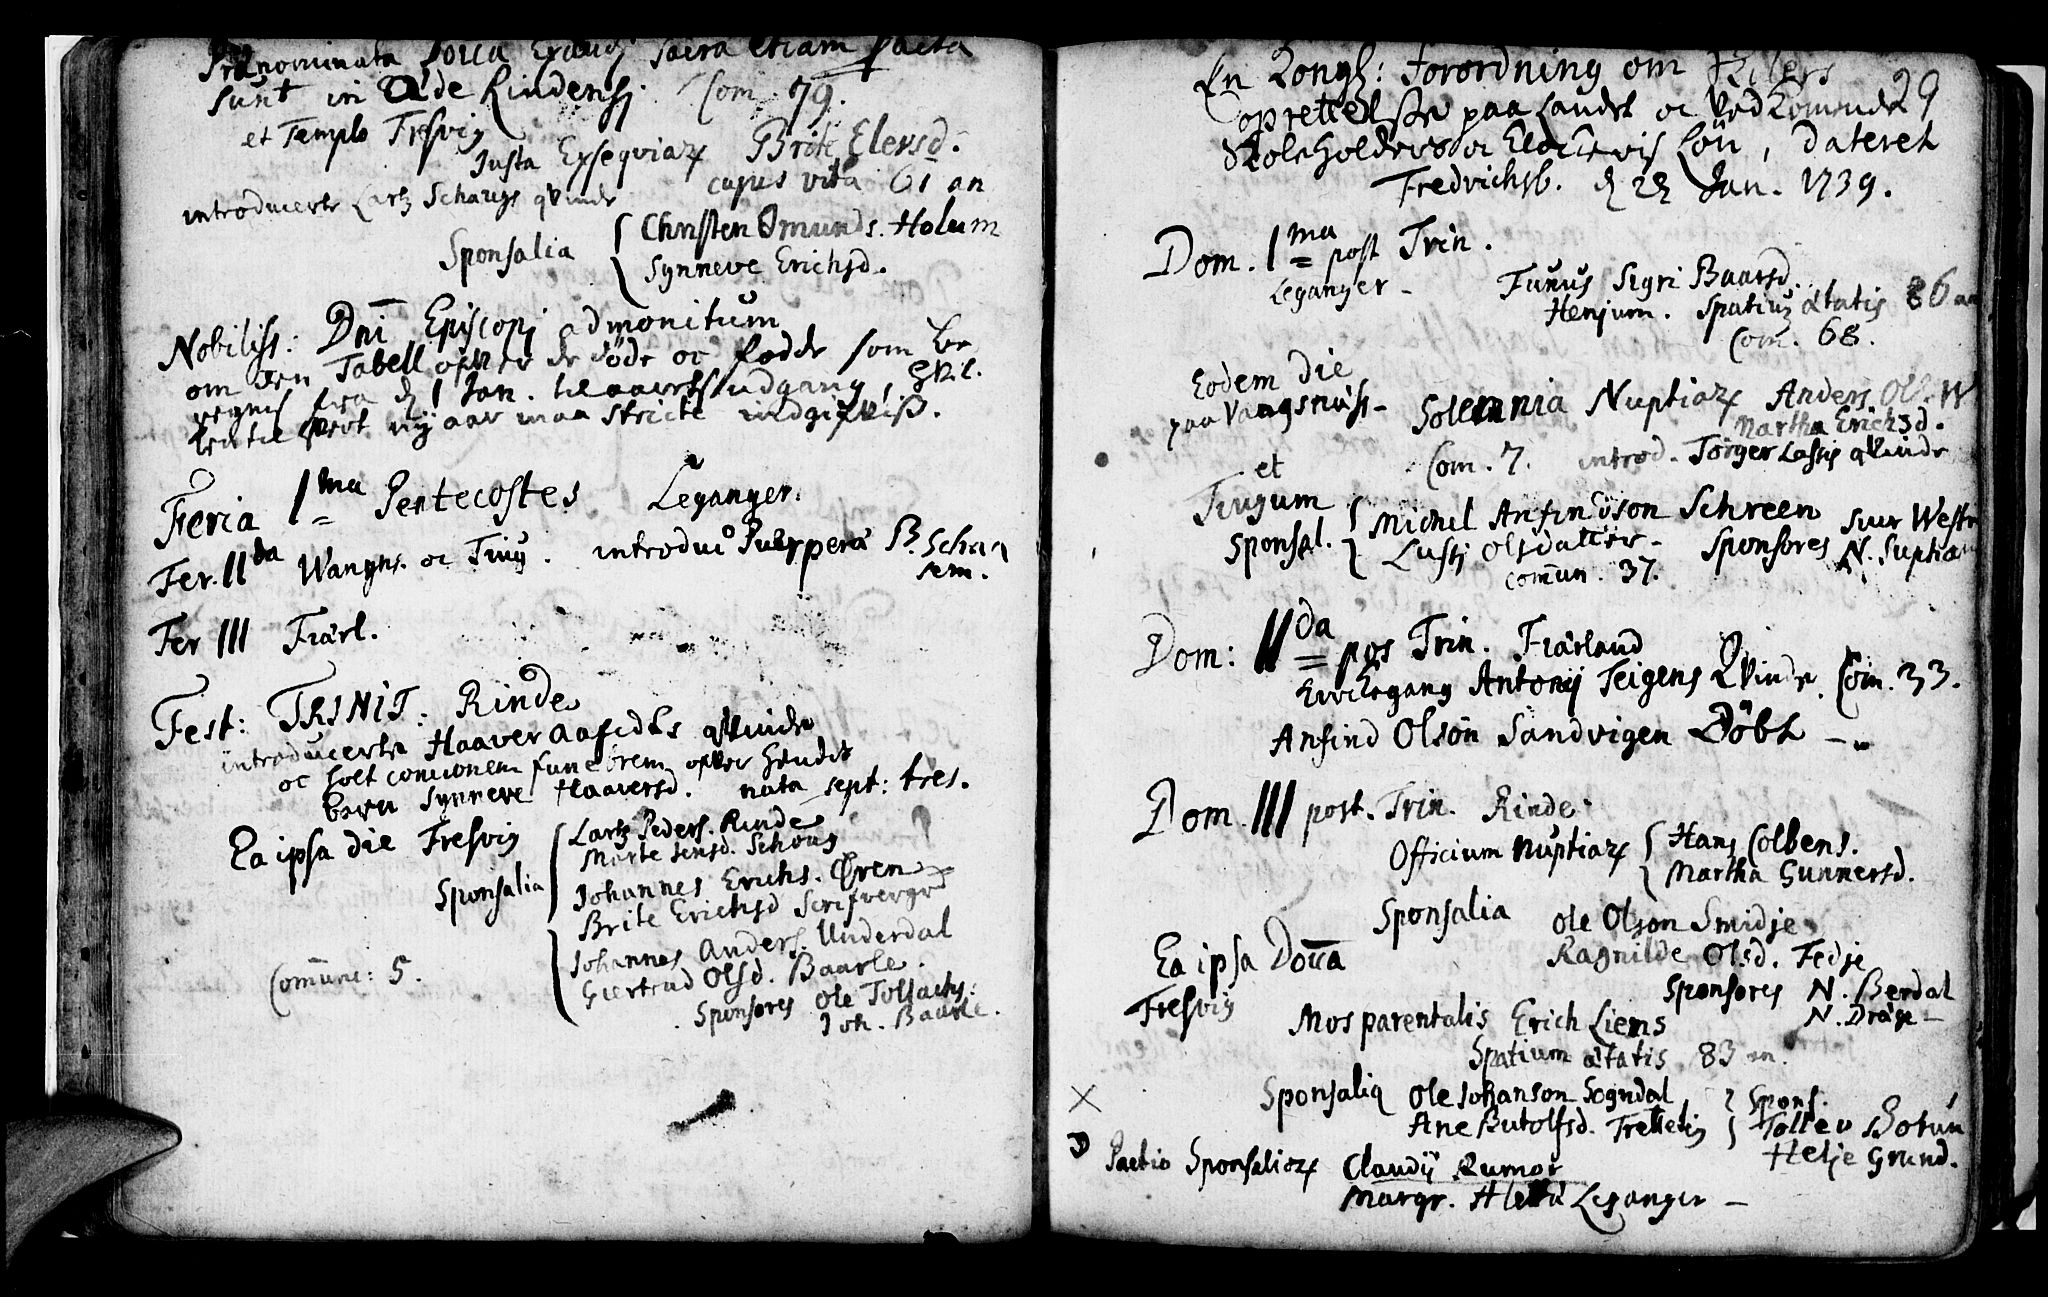 Prænominata Doica Exaudi sacra etiam facta
sunt in Æde Rindensj. Com. 79.
et Templo Fresvig
Justa Exseqviar Brite Elersd.
cujus vita 61 an
introducerte Lartz Schaugs qvinde
Sponsalia Christen Omunds. Holum
Synneve Erichsd.
Nobiliss: Dni Episcopj admonitum
om den Tabell ofver de döde oc fødde som be
regnes fra d 1 Jan. til aarets udgang,
til hvert nÿ aar maa stricte indgifves.
Feria 1ma Pentecostes Leganger.
Fer. IIda Wangns. oc Tiug. introdui Puerpera B. Scha
sem.
Fer III Fiärl.
Fest: TRINIT: Rinde
introducerte Haaver Aafedts qvinde
oc holt concionem funebrem ofver hendes
barn Synneve Haaversd. nata sept: tres.
Ea ipsa die Fresvig
Lartz Peders. Rinde
Marte Jensd. Schoug
Sponsalia Johannes Erichs. Øren
Brite Erichsd Scrifvergrd
Johannes Anders. Underdal
Giertrud Olsd. Baarle.
Commune: 5.
Sponsores Ole Tollachs:
Joh. Baarle.
29
En Kongl: Forordning om
oprettelse paa Landet oc hvad
Skoleholders oc Löu, dateret
Fredrichsb. d 23 Jan. 1739.
Dom. 1ma post Trin.
Leganger - Funus Sigri Baarsd.
Henjum. Spatiu ætatis 86 an
Com. 68.
Eodem die
paa Vangsnæss - Solemnia Nuptiar Anders Ols. W
Martha Erichsd.
et Com. 7. introd. Törger Lassis qvinde
Tiugum
Sponsal. Michel Anfindson Schreen
Lussj Olsdatter - Sponsores Siur Westr
N. Suphia
commun. 37.
Dom: IIda pos Trin. Fiärland
Kirchegang Antonij Teigens Qvinde. Com. 33.
Anfind Olson Sandvigen Döbt -
Dom. III post. Trin. Rinde
Officium nuptiar Hans Colbens.
Martha Gunnersd.
Sponsalia Ole Olson Smidje
Ragnilde Olsd. Fedje
Ea ipsa Doīca
Sponsores N. Berdal
N. Dräge -
Fresvig
Mos parentalis Erich Liens
Spatium ætatis 83 an.
Sponsalia Ole Johanson Sogndal
Ane Butolfsd. Frettetig
Spons.
Tollev Botun
Helje Grund.
Pactio Sponsaliar Claudij Rumor
Margr. Leganger -